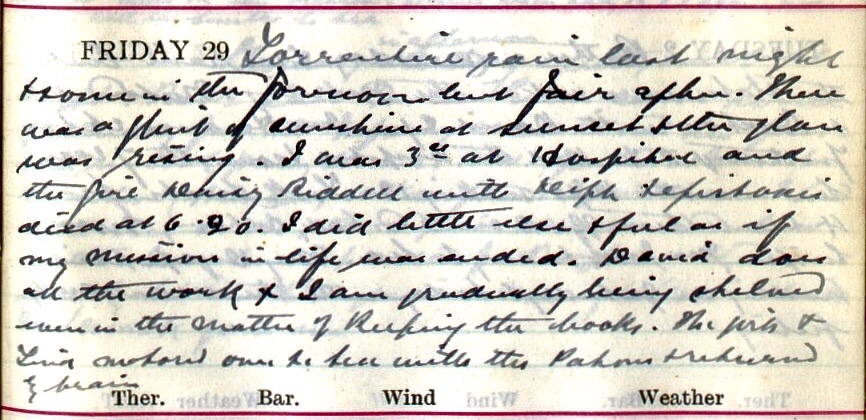 FRIDAY 29 Torrential rain last night
& some in the forenoon but fair after. There
was a glint of sunshine at sunset & the glass
was rising. I was 3rd at Hospital and
the girl Daisy Riddell with Diph &
died at 6.20. I did little else & feel as if
my mission in life was ended. David does
all the work & I am gradually being shelved
even in the matter of keeping the books. The girls &
motored over to tea with the Patons & returned
by train
Ther. Bar. Wind Weather